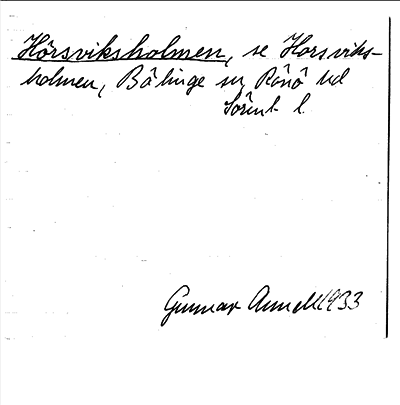 Hörsviksholmen, se Horsviks-
holmen, Bälinge sn Rönö hd
Sörml. l.
Gunnar Annell 1933